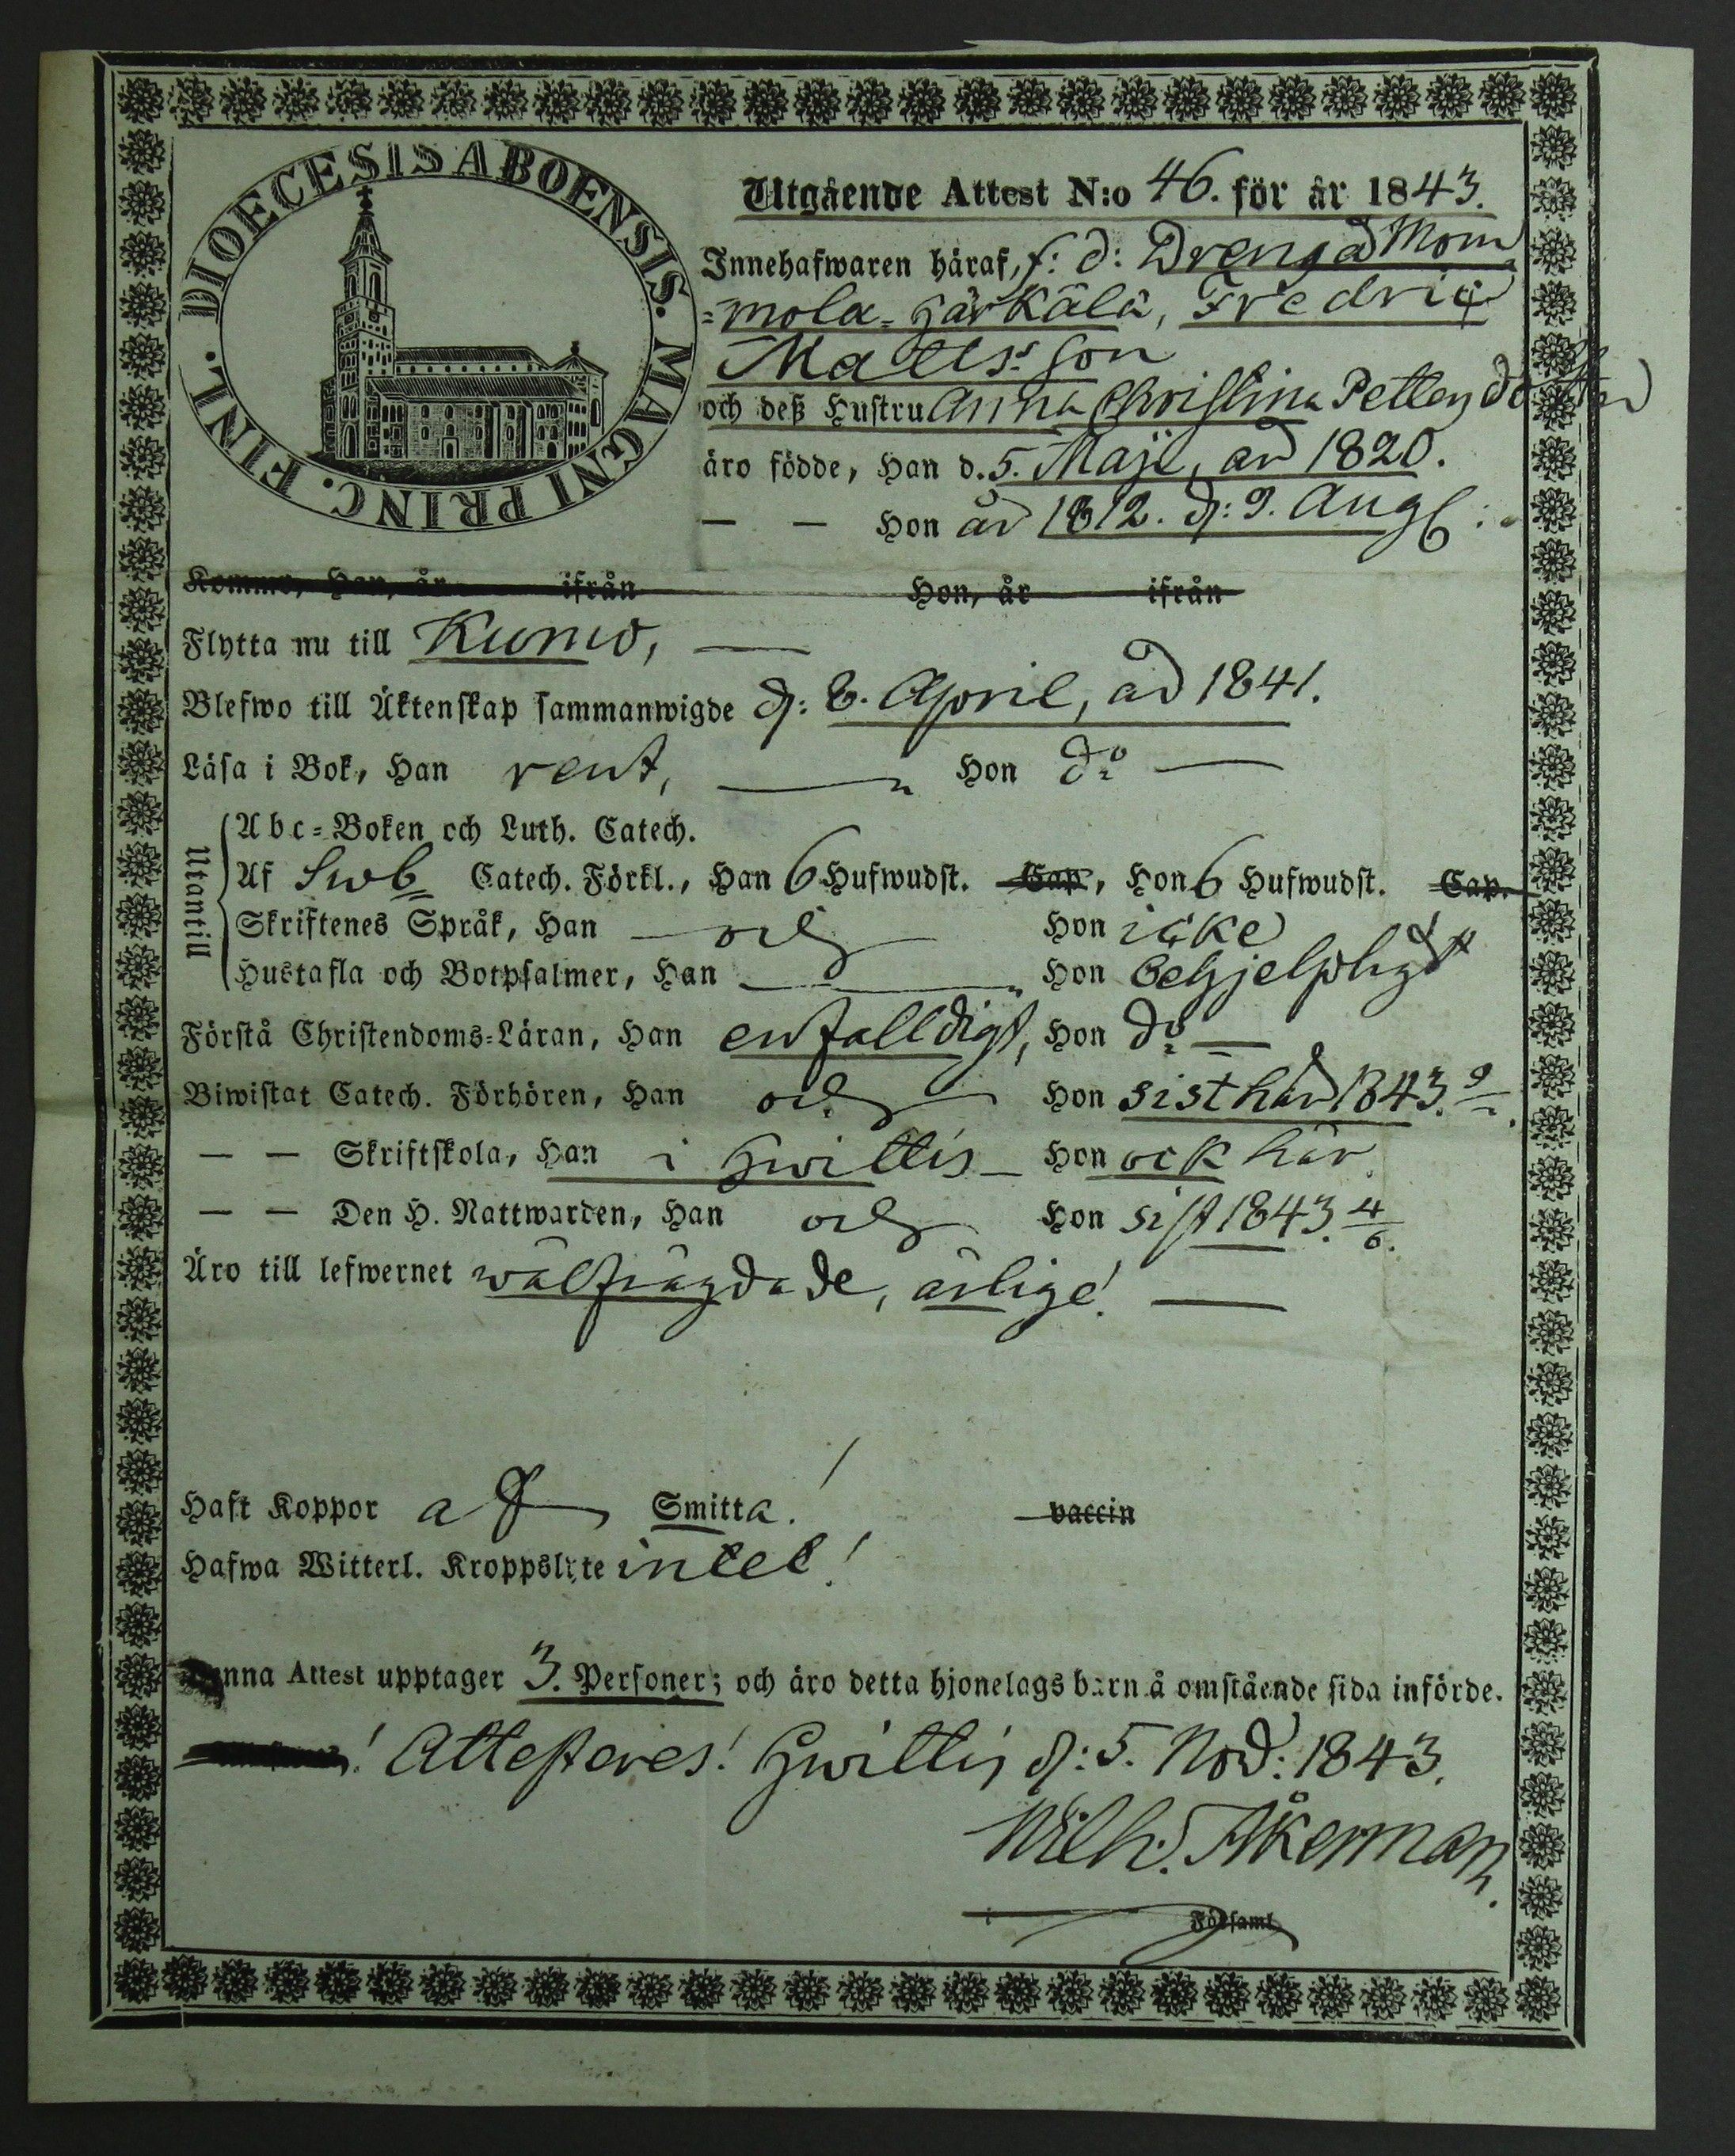 DIOECESIS ABOENSIS. MAGNI PRINC. FINL.
Utgående Attest N:o 46. för år 1843.
Innehafwaren häraf, f: d: Dreng å Mom
=mola-Härkälä, Fredric
Matts:son
och deß Hustru Anna Christina Petters dotter
äro födde, Han d. 5. Maji, år 1820.
— — Hon år 1812. d: 9. Aug
Kommo, Han, år ifrån Hon, år ifrån
Flytta nu till Kumo, —
Blefwo till Äktenskap sammanwigde d: 6. April, år 1841.
Läsa i Bok, Han rent, — Hon do —
Utantill
Abc=Boken och Luth. Catech.
Af Swb Catech. Förkl., Han 6 Hufwudst. Cap, Hon 6 Hufwudst. Cap.
Skriftenes Språk, Han — och Hon icke
Hustafla och Botpsalmer, Han — Hon behjelpligt
Förstå Christendoms=Läran, Han enfalldigt, Hon do —
Biwistat Catech. Förhören, Han och Hon sist här 1843.
— — Skriftskola, Han i Hwittis — Hon ock här.
— — Den H. Nattwarden, Han och Hon sist 1843. 4/6.
Äro till lefwernet wälfrägdade, ärlige! —
Haft Koppor af Smitta! vaccin
Hafwa Witterl. Kroppslyte intet!
Denna Attest upptager 3. Personer; och äro detta hjonelags barn å omstående sida införde.
! Attesteres! Hwittis d: 5. Nov: 1843.
Wilh. Åkerman.
i Församl.